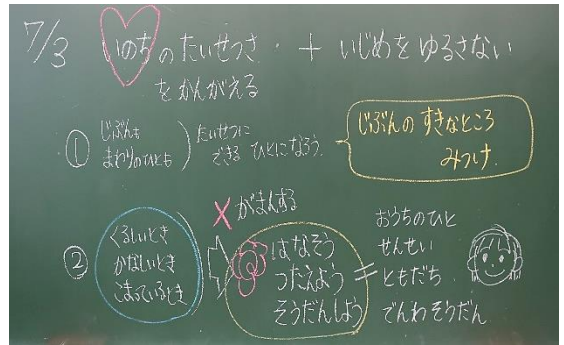 7/3 いのちのたいせつさ + いじめをゆるさない
をかんがえる
① じぶんも
まわりのひとも
たいせつに
できる ひとになろう.
じぶんの すきなところ
みつけ.
② くるしいとき
かなしいとき
こまっているとき
× がまんする
はなそう
つたえよう
そうだんしよう
おうちのひと
せんせい
ともだち
でんわそうだん